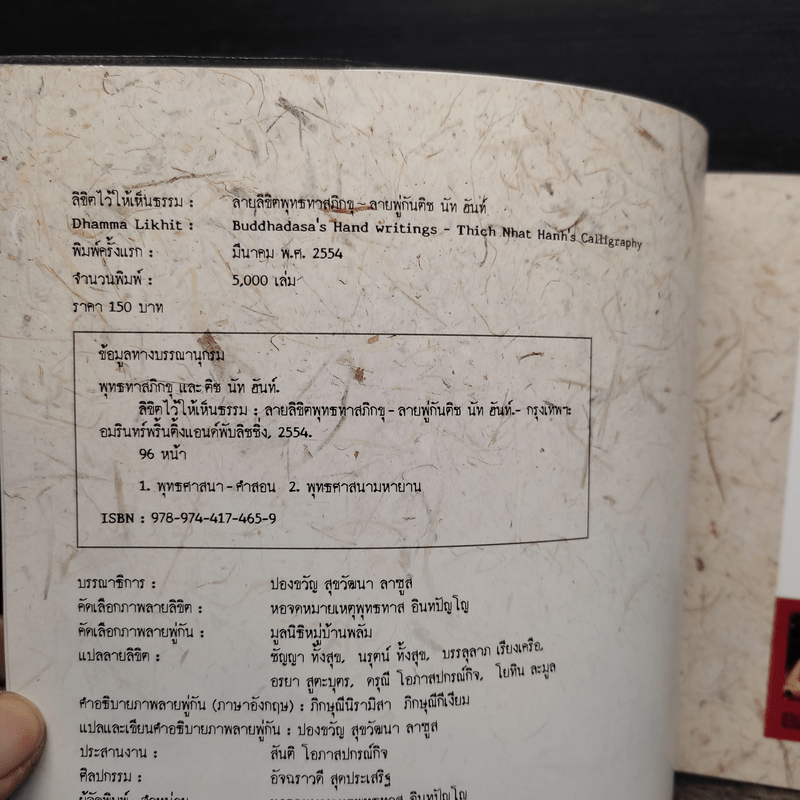 ลิขิตไว้ให้เห็นธรรม : ลายลิขิตพุทธทาสภิกขุ - ลายพู่กันติช นัท ฮันห์
Dhamma Likhit : Buddhadasa's Hand writings - Thich Nhat Hanh's Calligraphy
พิมพ์ครั้งแรก : มีนาคม พ.ศ. 2554
จำนวนพิมพ์ : 5,000 เล่ม
ราคา 150 บาท
ข้อมูลทางบรรณานุกรม
พุทธทาสภิกขุ และ ติช นัท ฮันห์.
ลิขิตไว้ให้เห็นธรรม : ลายลิขิตพุทธทาสภิกขุ - ลายพู่กันติช นัท ฮันห์.- กรุงเทพฯ:
อมรินทร์พริ้นติ้งแอนด์พับลิชชิ่ง, 2554.
96 หน้า
1. พุทธศาสนา - คำสอน 2. พุทธศาสนามหายาน
ISBN : 978-974-417-465-9
บรรณาธิการ : ปองขวัญ สุขวัฒนา ลาซูส
คัดเลือกภาพลายลิขิต : หอจดหมายเหตุพุทธทาส อินทปัญโญ
คัดเลือกภาพลายพู่กัน : มูลนิธิหมู่บ้านพลัม
แปลลายลิขิต : ชัญญา ทั้งสุข, นรุตน์ ทั้งสุข, บรรลุลาภ เรียงเครือ,
อรยา สูตะบุตร, ดรุณี โอภาสปกรณ์กิจ, โยทิน ละมูล
คำอธิบายภาพลายพู่กัน (ภาษาอังกฤษ) : ภิกษุณีนิรามิสา ภิกษุณีกีเงียม
แปลและเขียนคำอธิบายภาพลายพู่กัน : ปองขวัญ สุขวัฒนา ลาซูส
ประสานงาน : สันติ โอภาสปกรณ์กิจ
ศิลปกรรม : อัจฉราวดี สุดประเสริฐ
อินทปัญโญ